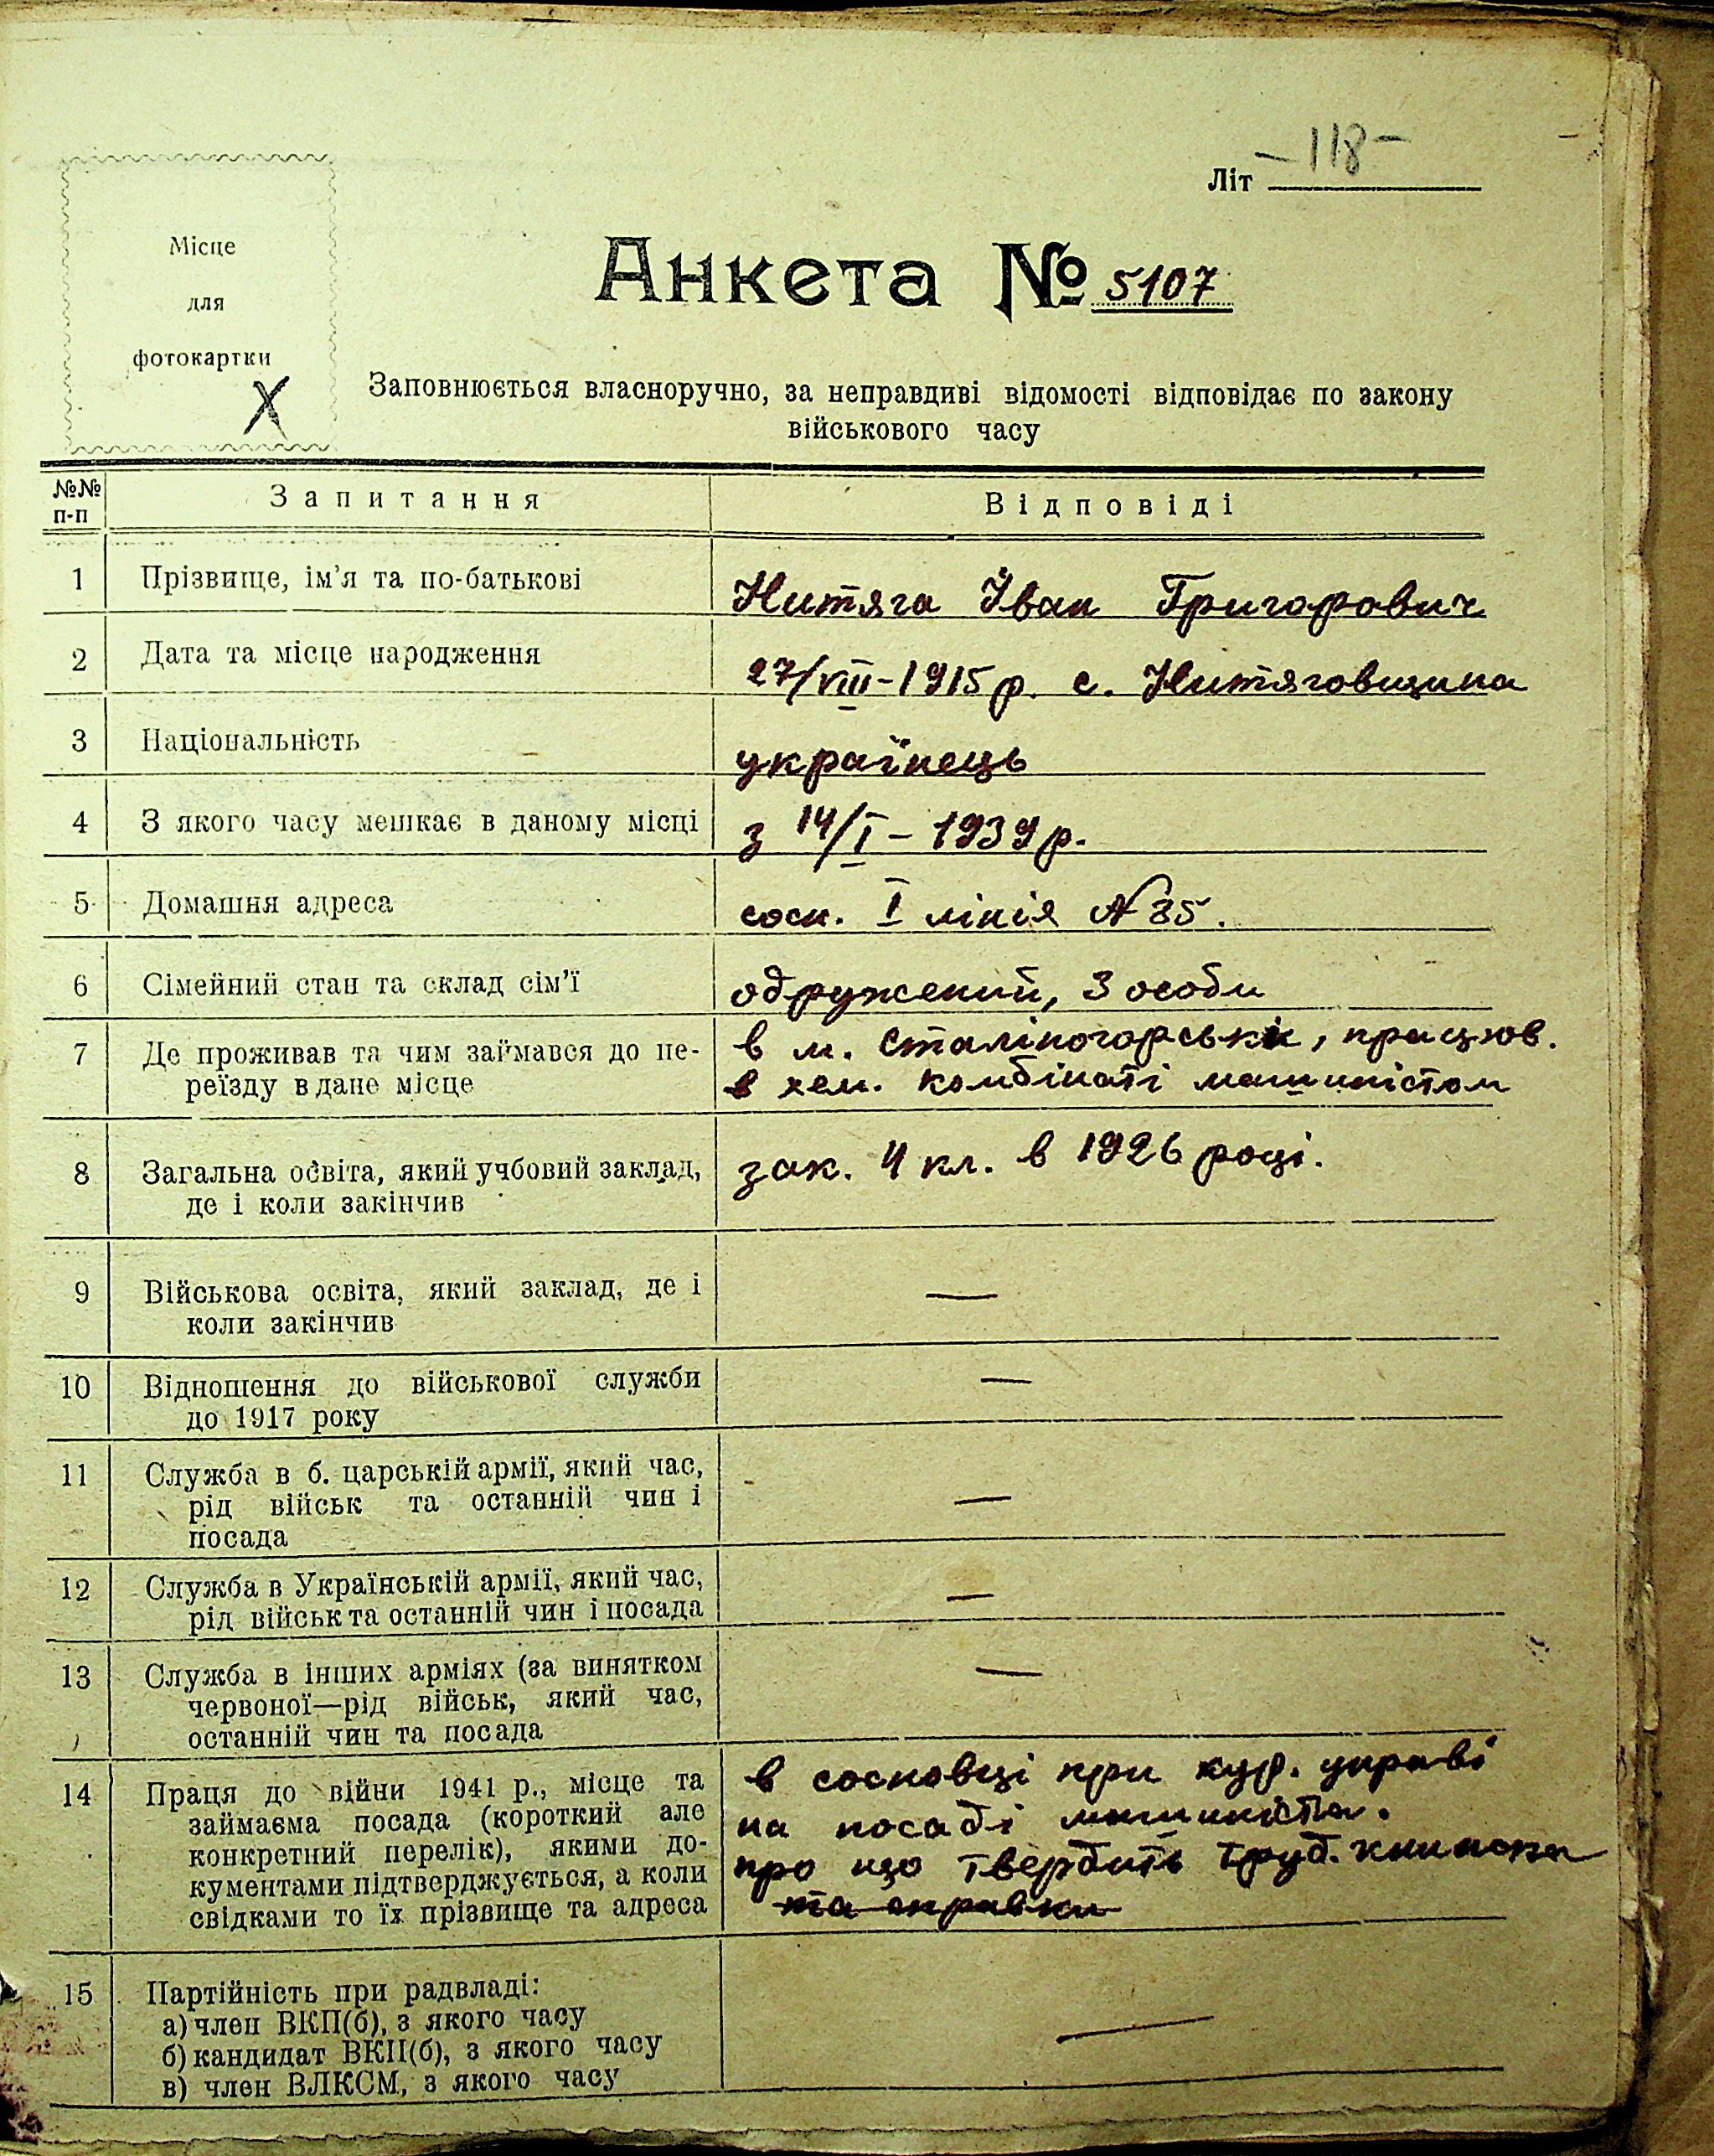 Літ -118-
Місце
для
фотокартки
X
Анкета № 5107
Заповнюється власноручно, за неправдиві відомості відповідає по закону
військового часу
№№ п-п Запитання Відповіді
1 Прізвище, ім'я та по-батькові Нитяга Іван Григорович
2 Дата та місце народження 27/VIII-1915 р. с. Нитяговщина
3 Національність українець
4 З якого часу мешкає в даному місці з 14/I - 1939 р.
5 Домашня адреса сосн. I лінія № 35.
6 Сімейний стан та склад сім'ї одружений, 3 особи
7 Де проживав та чим займався до пе- в м. Сталіногорськ, працюв.
реїзду в дане місце в хем. комбінаті машиністом
8 Загальна освіта, який учбовий заклад, зак. 4 кл. в 1926 році.
де і коли закінчив
9 Військова освіта, який заклад, де і —
коли закінчив
10 Відношення до військової служби —
до 1917 року
11 Служба в б. царській армії, який час,
рід військ та останній чин і —
посада
12 Служба в Українській армії, який час, —
рід військ та останній чин і посада
13 Служба в інших арміях (за винятком —
червоної—рід військ, який час,
останній чин та посада
14 Праця до війни 1941 р., місце та в сосновці при управі
займаєма посада (короткий але на посаді машиніста.
конкретний перелік), якими до- про що твердить труд. книжка
кументами підтверджується, а коли та справки
свідками то їх прізвище та адреса
15 Партійність при радвладі:
а) член ВКП(б), з якого часу —
б) кандидат ВКП(б), з якого часу
в) член ВЛКСМ, з якого часу